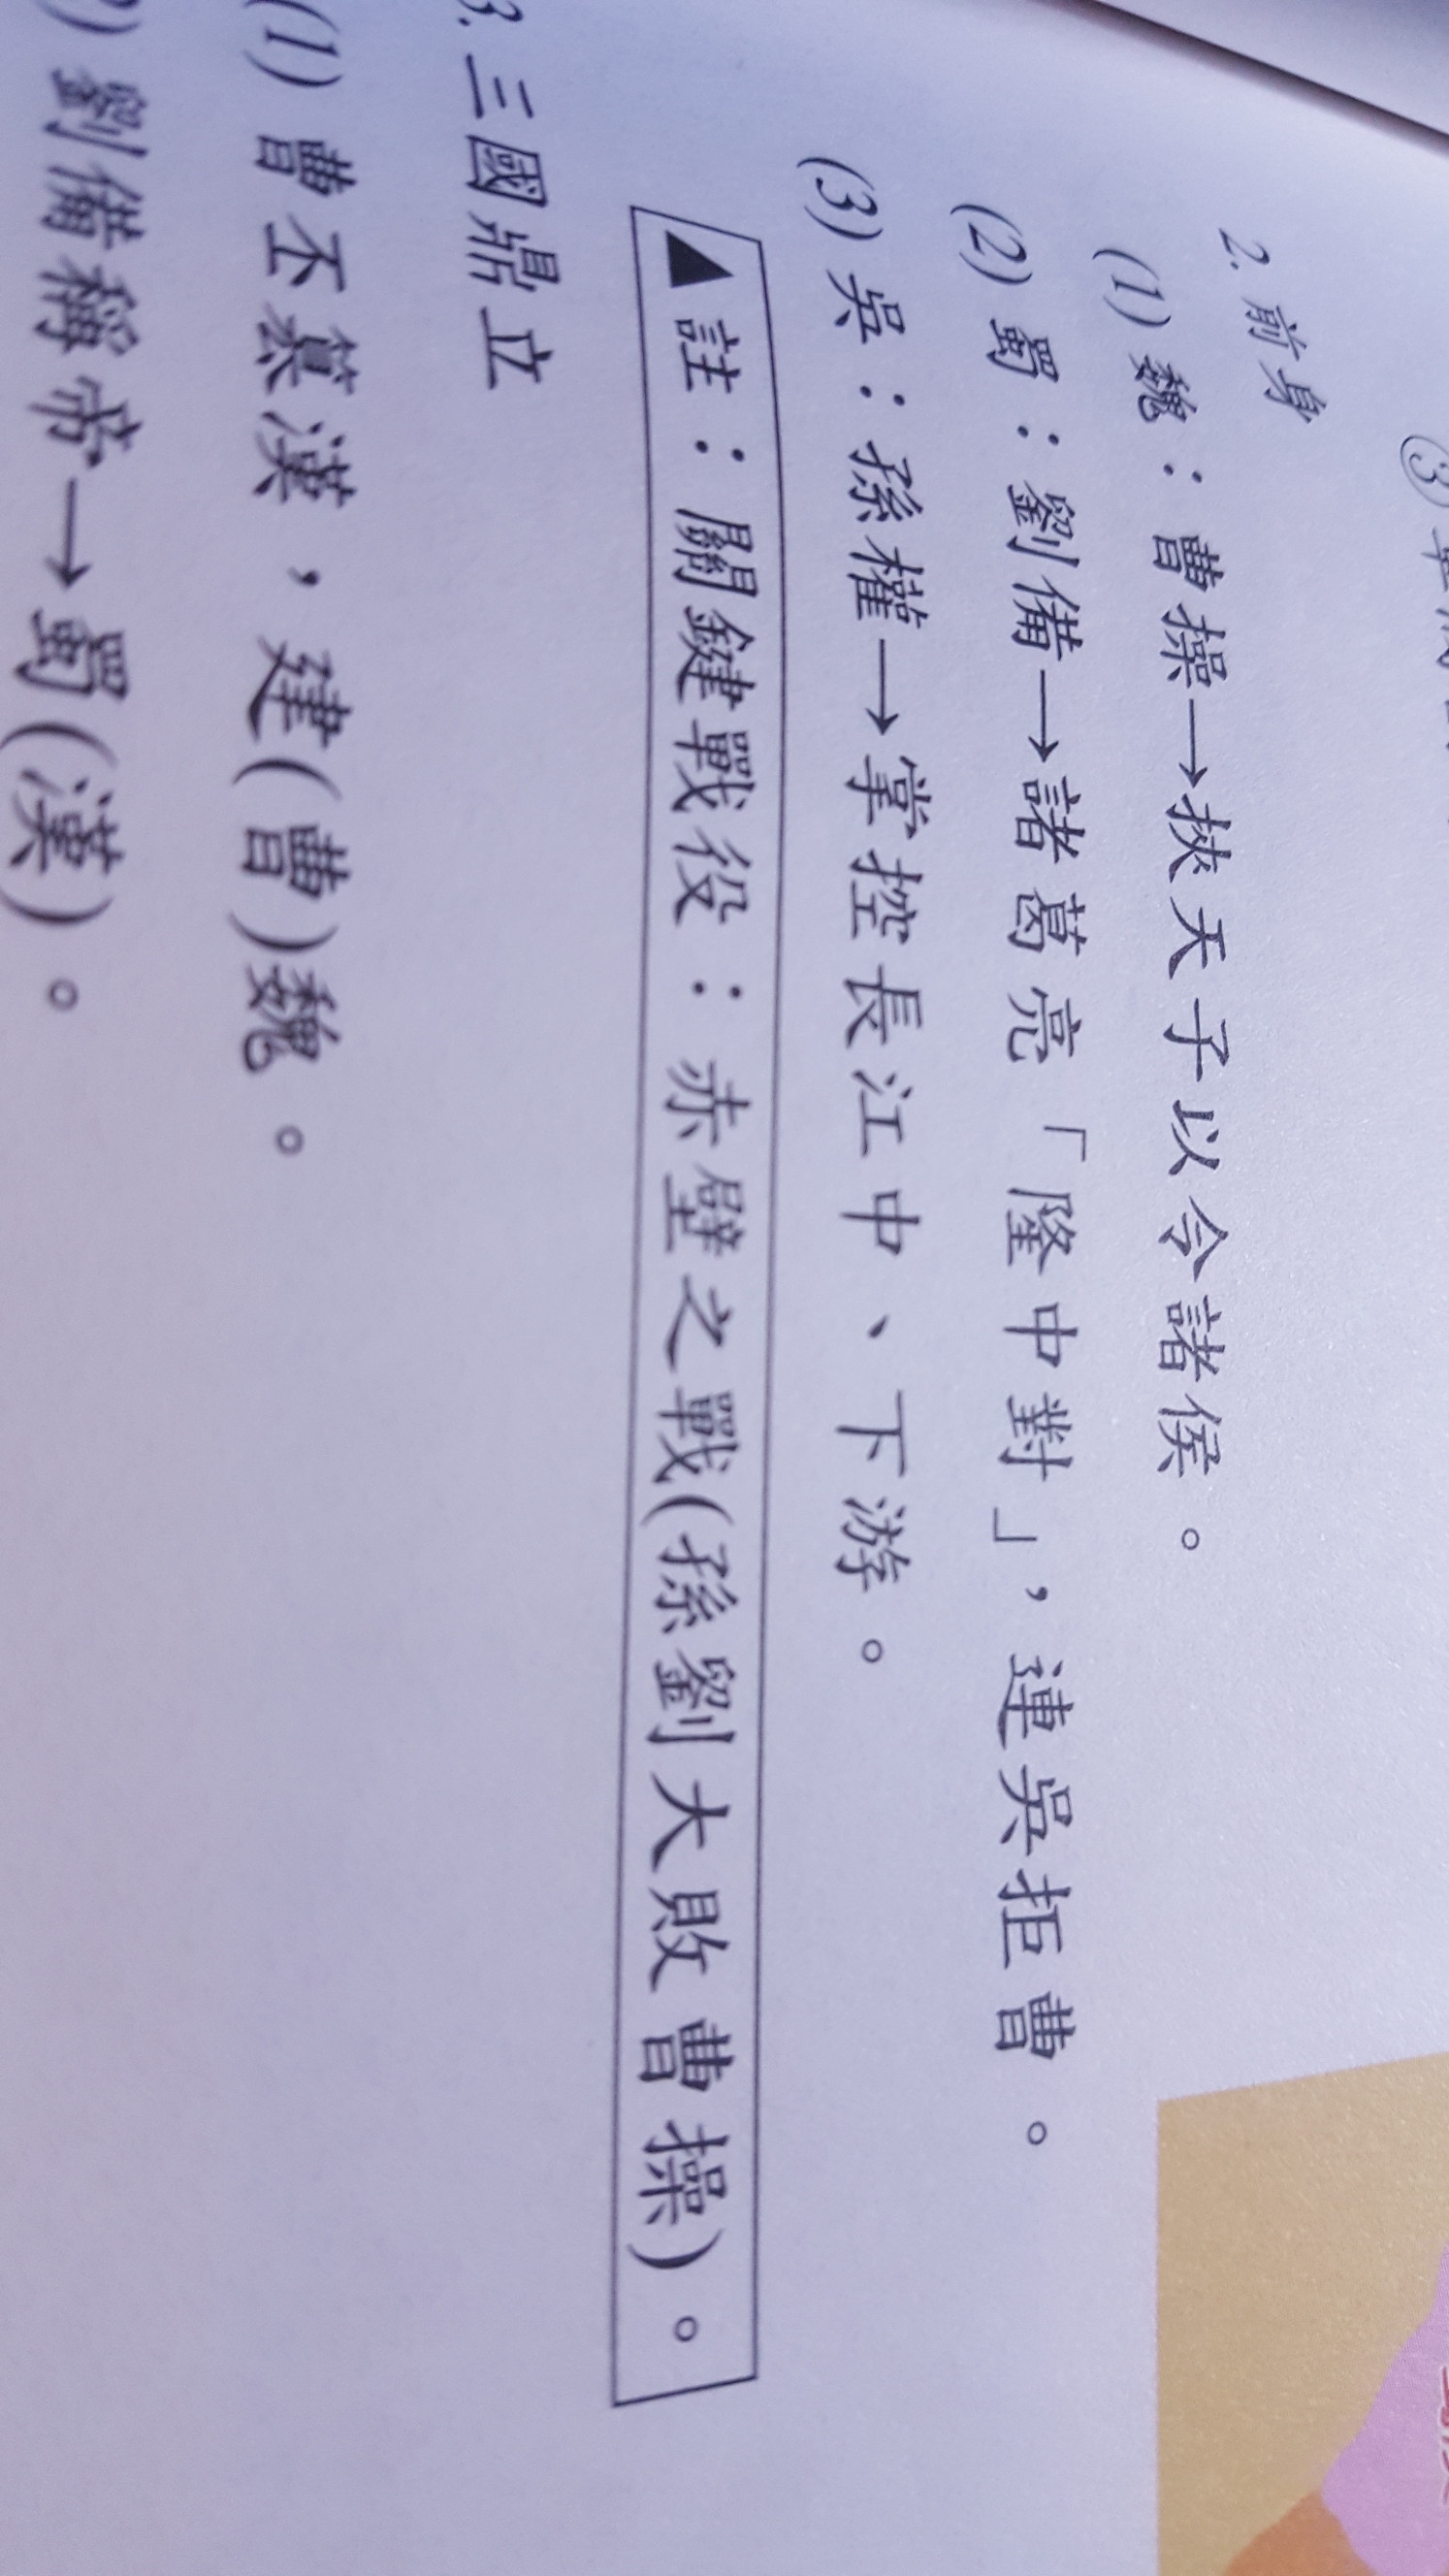 2. 前身
(1) 魏：曹操→挾天子以令諸侯。
(2) 蜀：劉備→諸葛亮「隆中對」，連吳拒曹。
(3) 吳：孫權→掌控長江中、下游。
▲註：關鍵戰役：赤壁之戰(孫劉大敗曹操)。
3. 三國鼎立
(1) 曹丕篡漢，建(曹)魏。
劉備稱帝→蜀(漢)。